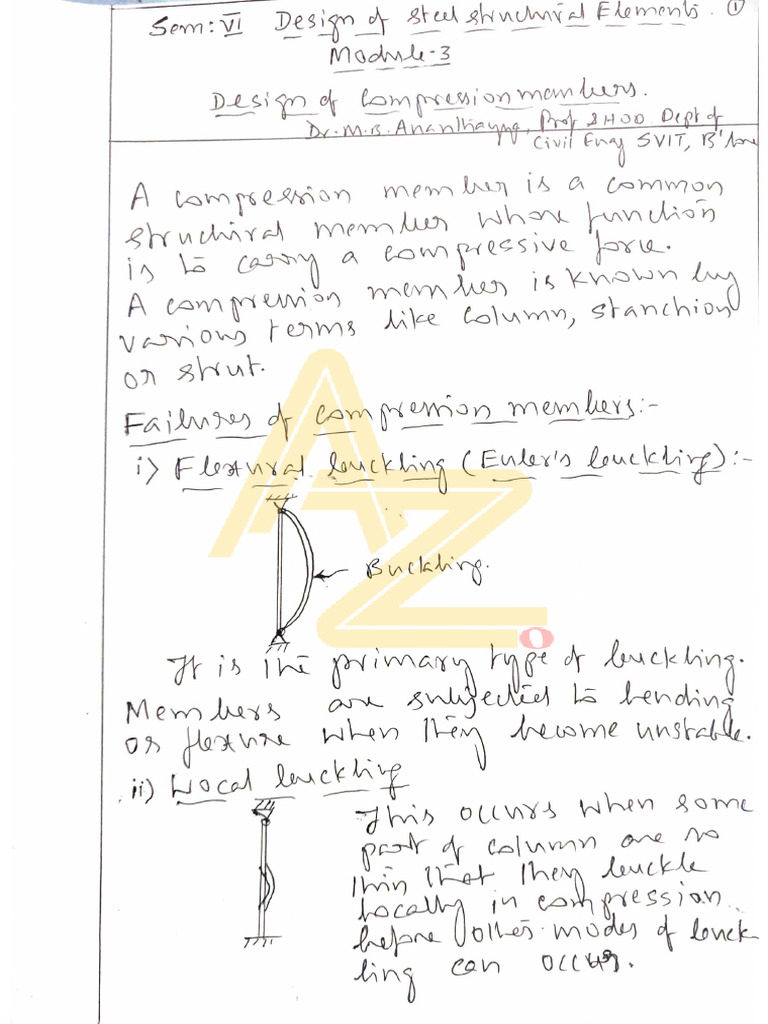 Sem: VI Design of Steel Structural Elements. 1
Module-3
Design of Compression members.
Dr. M. B. Ananthayya, Prof & HOD Dept of
Civil Engg SVIT, B'lore
A compression member is a common
structural member whose function
is to carry a compressive force.
A compression member is known by
various terms like column, stanchion
or strut.
Failures of compression members:-
i) Flextural buckling (Euler's buckling):-
Buckling.
It is the primary type of buckling.
Members are subjected to bending
or flexture when they become unstable.
ii) Local buckling
This occurs when some
part of column are so
thin that they buckle
locally in compression
before other modes of buck
ling can occur.
AZ